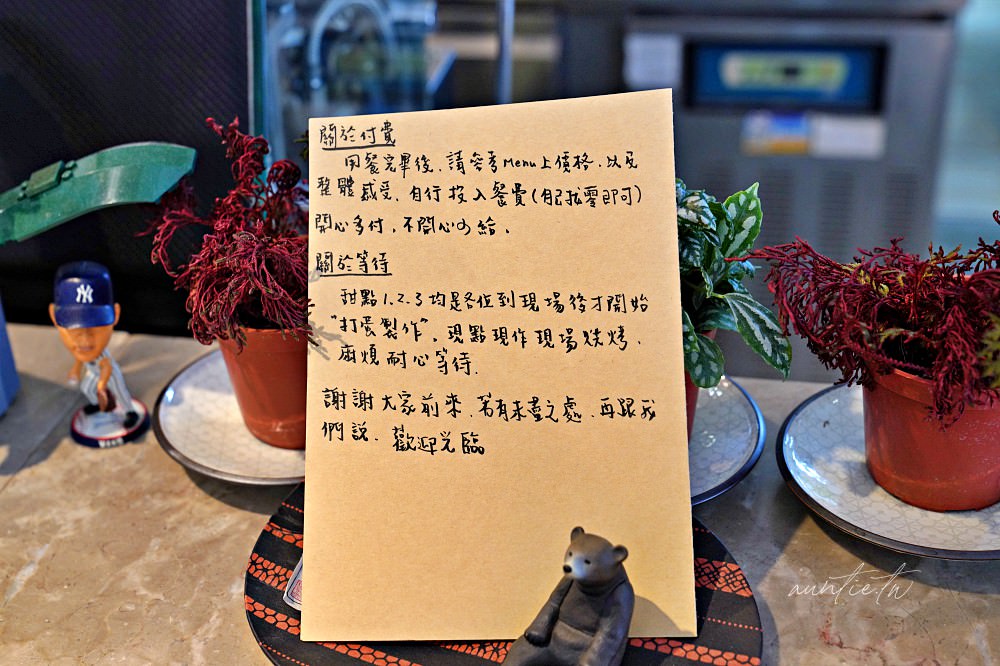 關於付費
用餐完畢後,請參考Menu上價格,以及
整體感受,自行投入餐費(自己找零即可)
開心多付,不開心少給。
關於等待
甜點1.2.3均是各位到現場後才開始
"打蛋製作",現點現作現場烘烤,
麻煩耐心等待.
謝謝大家前來,若有未盡之處,再跟我
們說. 歡迎光臨
NY
auntie.tw